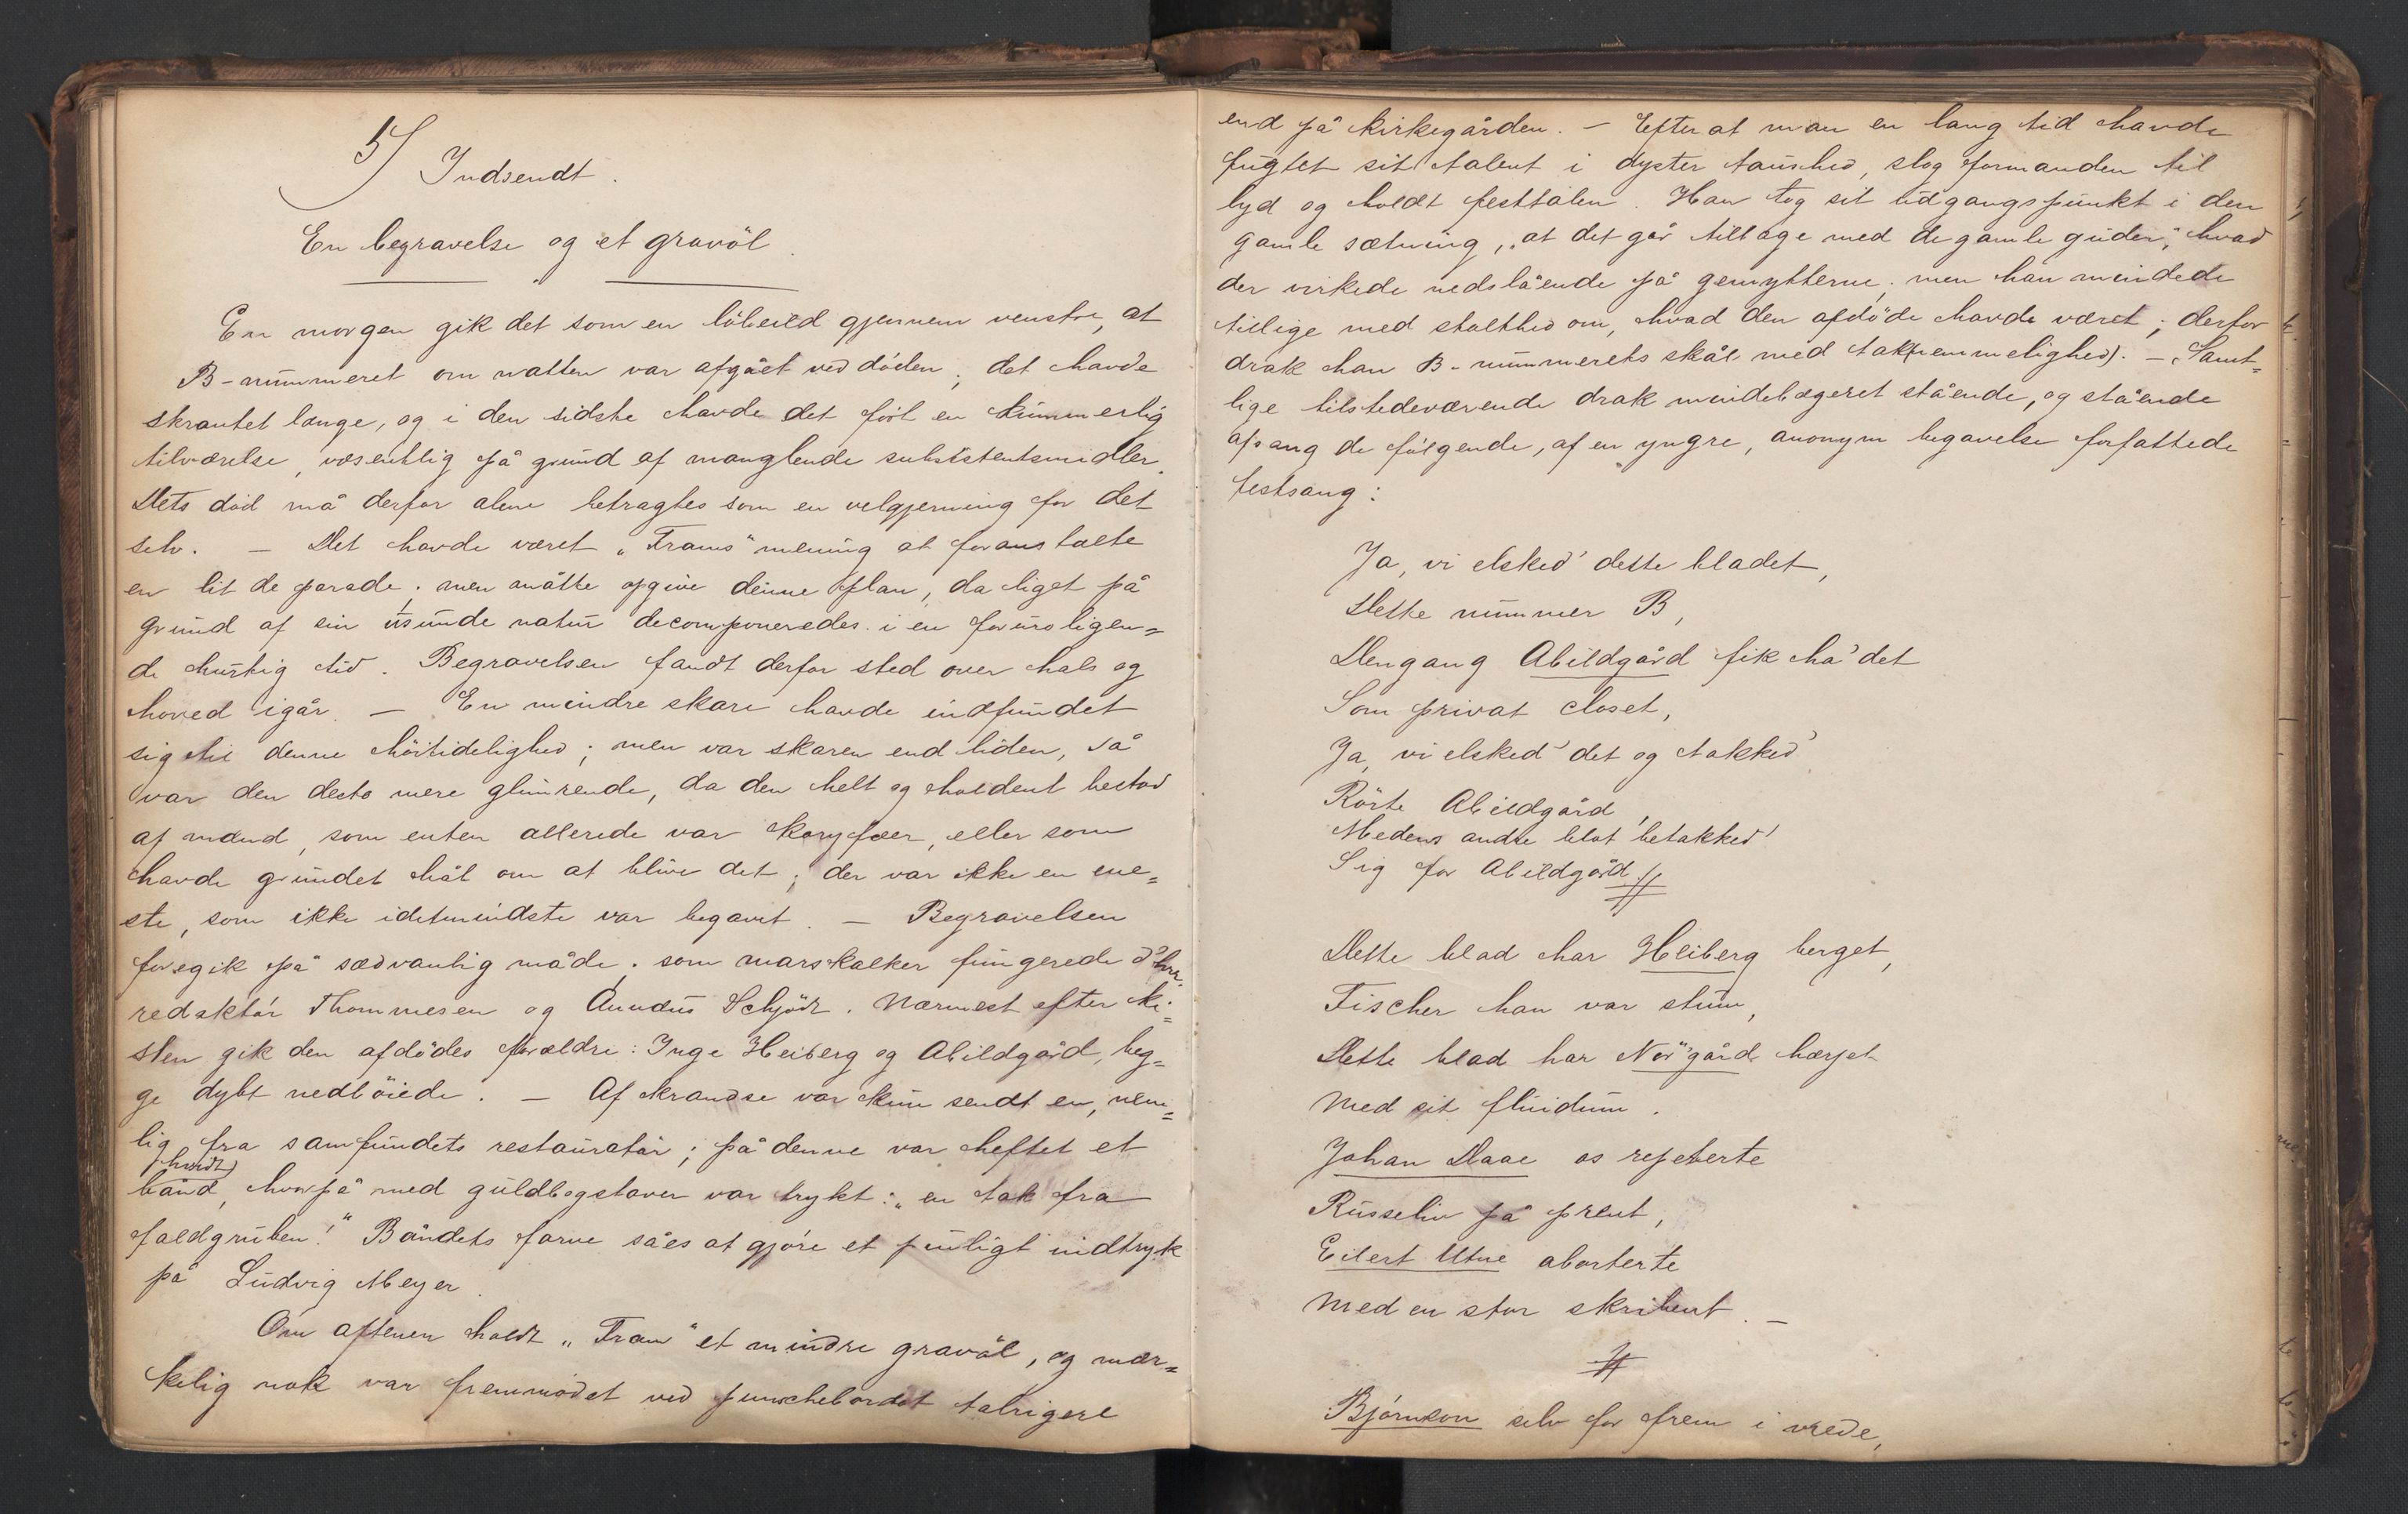 5/ Indsendt.
En begravelse og et gravöl.
En morgen gik det som en löbeild gjennem venstre, at
B-nummeret om natten var afgået ved döden; det havde
skrantet længe, og i den sidste havde det fört en kummerlig
tilværelse, væsentlig på grund af manglende subsistentsmidler.
Dets död må derfor alene betragtes som en velgjerning for det
selv. — Det havde været „Frams" mening at foranstalte
en lit de parade; men måtte opgive denne plan, da liget på
grund af sin usunde natur decomponeredes i en foruroligen=
de hurtig tid. Begravelsen fandt derfor sted over hals og
hoved igår. — En mindre skare havde indfundet
sig til denne höitidelighed; men var skaren end liden, så
var den desto mere glimrende, da den helt og holdent bestod
af mænd, som enten allerede var koryfæer, eller som
havde grundet håb om at blive det; der var ikke en ene=
ste, som ikke idetmindste var begavet. — Begravelsen
foregik på sædvanlig måde; som marskalker fungerede d'hrr.
redaktör Thommesen og Annæus Schjödt. Nærmest efter ki=
sten gik den afdödes forældre: Inge Heiberg og Abildgård, beg=
ge dybt nedböiede. — Af krandse var kun sendt en, nem=
lig fra samfundets restauratör; på denne var heftet et
hvidt
bånd, hvorpå med guldbogstaver var trykt: „en tak fra
faldgruben!" Båndets farve såes at gjöre et pinligt indtryk
på Ludvig Meyer.
Om aftenen holdt „Fram" et mindre gravöl, og mær=
kelig nok var fremmödet ved punschebordet talrigere
end på kirkegården. — Efterat man en lang tid havde
fugtet sit talent i dyster taushed, slog formanden til
lyd og holdt festtalen. Han tog sit udgangspunkt i den
gamle sætning, „at det går tilbage med de gamle guder", hvad
der virkede nedslående på gemytterne; men han mindede
tillige med stolthed om, hvad den afdöde havde været; derfor
drak han B-nummerets skål med takknemmelighed). — Samt=
lige tilstedeværende drak mindebægeret stående, og stående
afsang de fölgende, af en yngre, anonym begavelse forfattede
festsang:
Ja, vi elsked' dette bladet,
Dette nummer B,
Dengang Abildgård fik ha' det
Som privat closet,
Ja, vi elsked' det og takked'
Rörte Abildgård,
Medens andre blot betakked'
Sig for Abildgård.
Dette blad har Heiberg berget,
Fischer han var stum,
Dette blad har Nörgård herjet
Med sit fluidum.
Johan Daae os repeterte
Russeliv på prent,
Eilert Utne aborterte
Med en stor skribent. —
Björnson selv for frem i vrede,